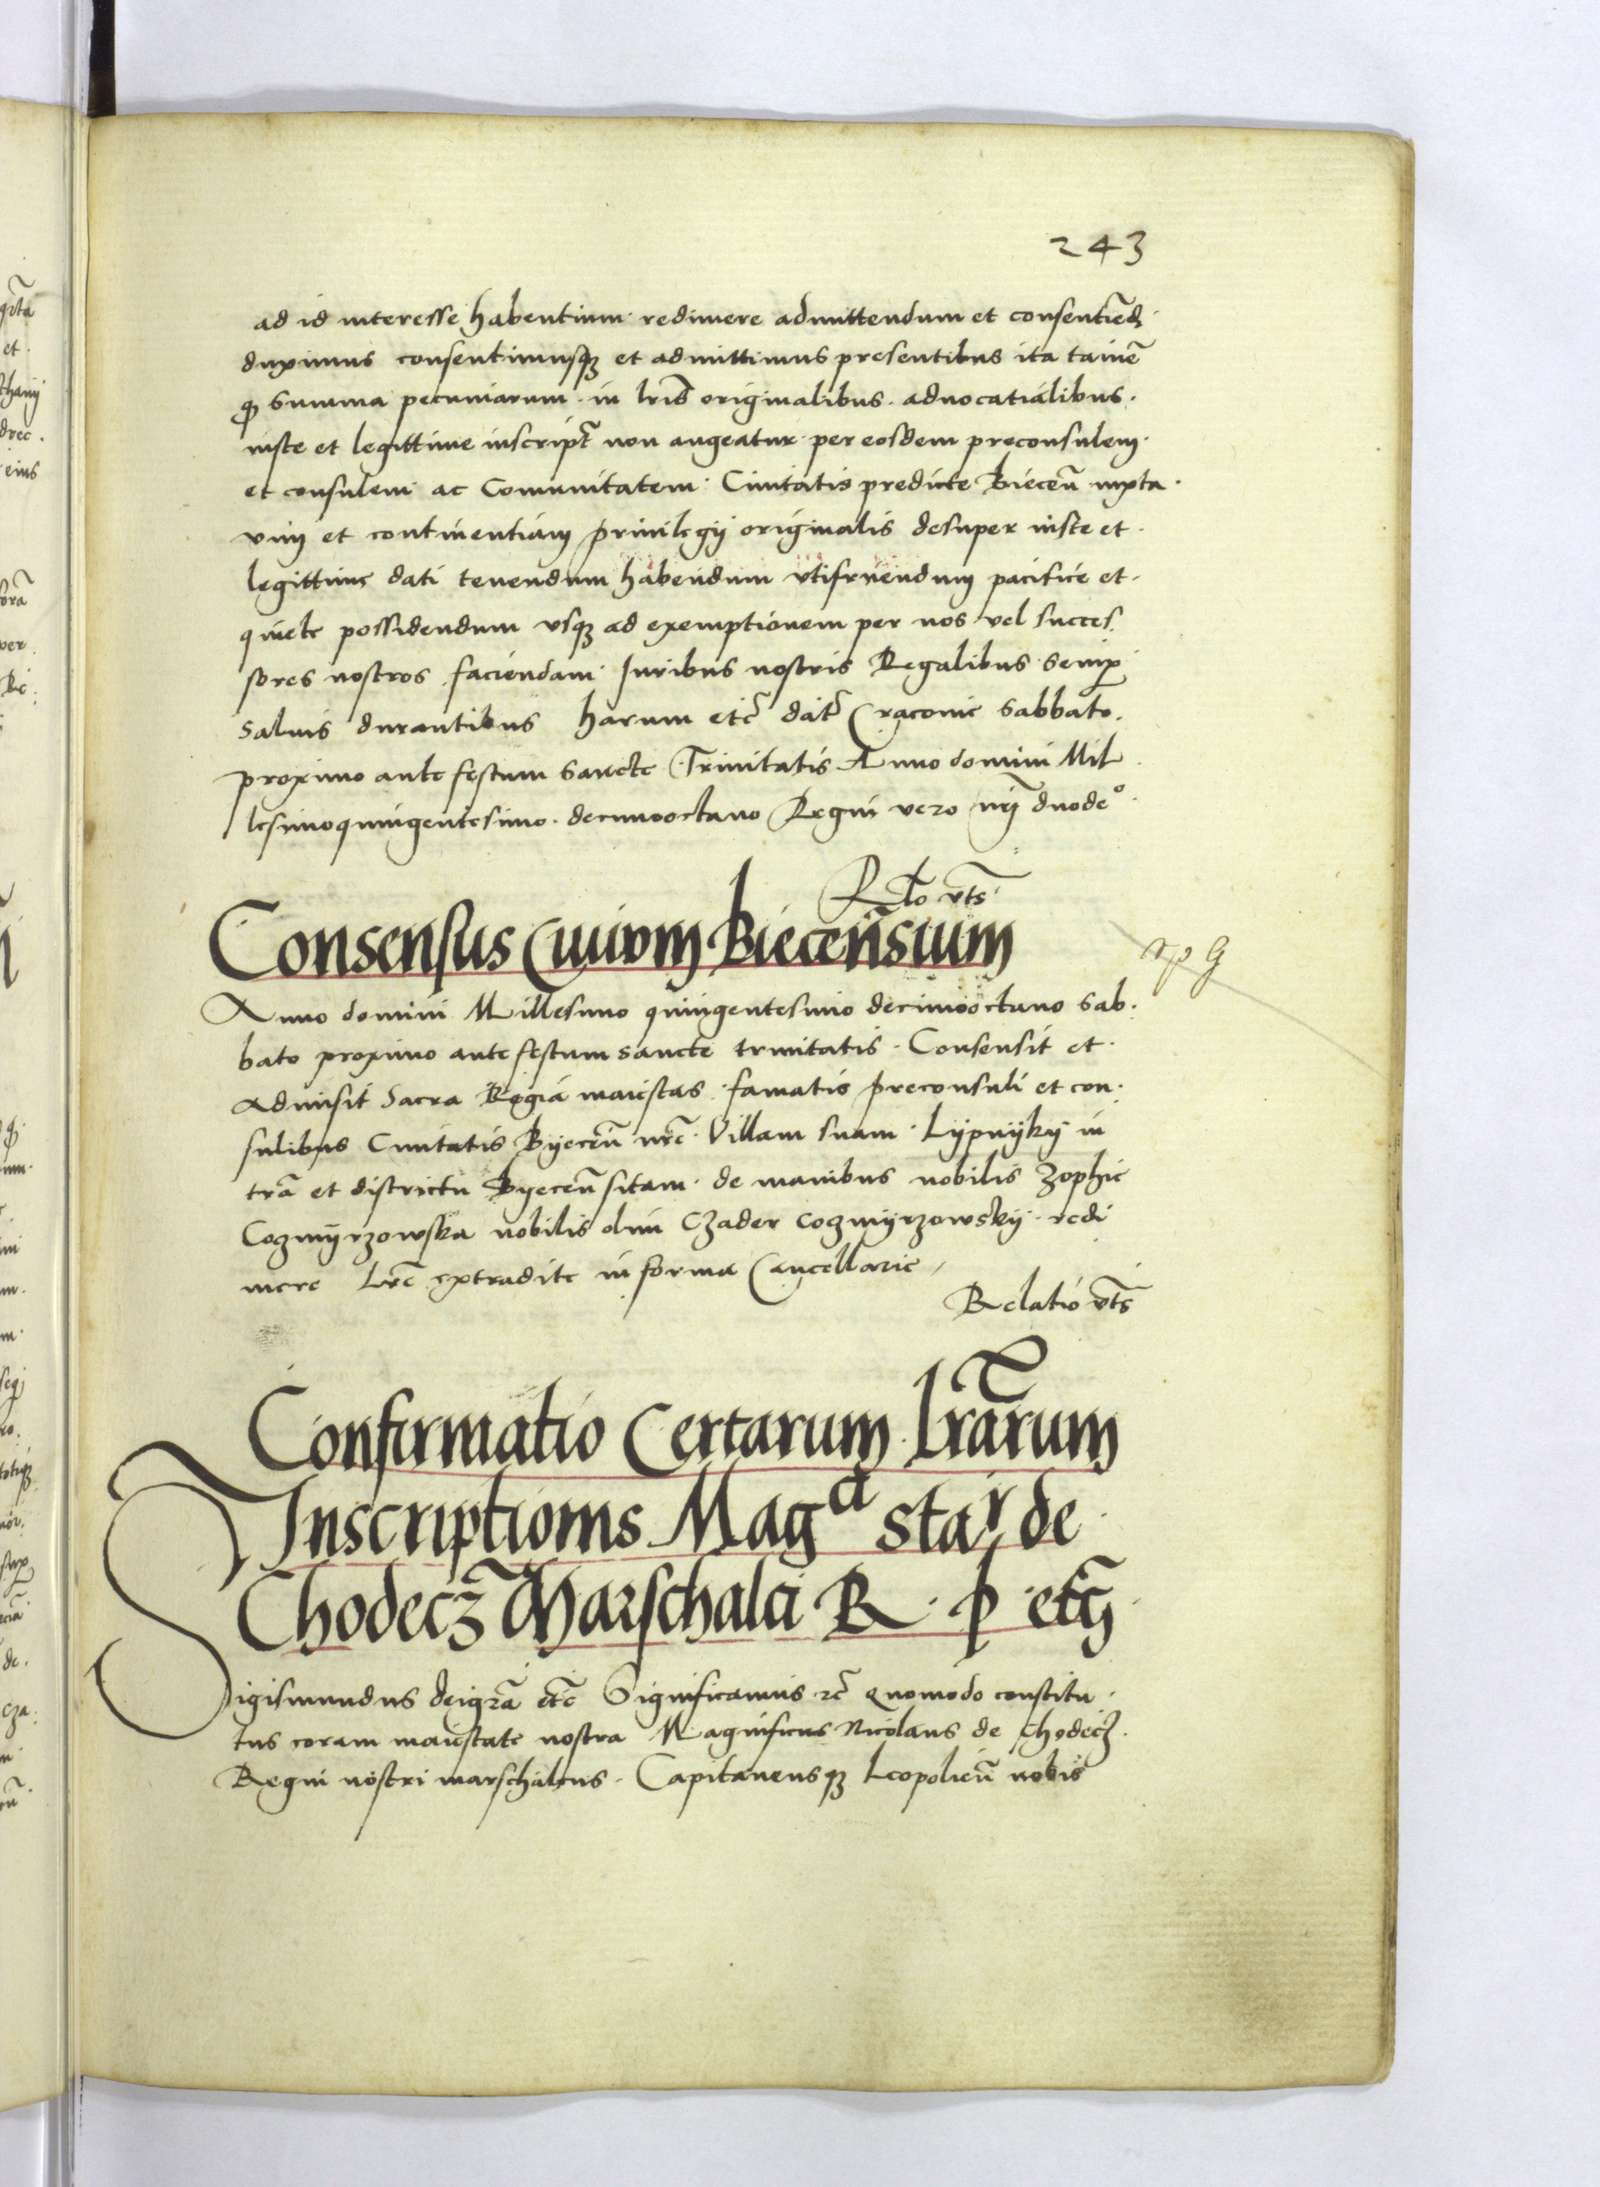 243
ad id interesse habentium redimere admittendum et consentiēdū
duximus consentimusqꝫ et admittimus presentibus ita tamē
ꝙ summa pecuniarum in lrīs originalibus advocatialibus
iuste et legittime inscripta non augeatur per eosdem preconsulem
et consulem ac Comunitatem Civitatis predicte Biecen̄ iuxta
vim et continentiam privilegij originalis desuper iuste et
legittime dati tenendum habendum utifruendum pacifice et
quiete possidendum usqꝫ ad exemptionem per nos vel succes
sores nostros faciendam Iuribus nostris Regalibus semꝑ
salvis durantibus harum etc̄ dat̄ Cracovie sabbato
proximo ante festum sancte Trinitatis Anno domini Mil
lesimoquingentesimo decimooctavo Regni vero nr̄i duode°
Rlō vts̄
Consensus Civivm Biecen̄sium
Anno domini Millesimo quingentesimo decimooctavo Sab
bato proximo ante festum sancte trinitatis Consensit et
Admisit Sacra Regia maiestas famatis preconsuli et con
sulibus Civitatis Byecen̄ nrē Villam suam Lypnyky in
trā et districtu Byecen̄ sitam de manibus nobilis Zophie
Cozmyrzowska nobilis olim Czader Cozmyrzowsky redi
mere Lrē extradite in forma Cancellarie
Relatio vts̄
Confirmatio Certarum Lrārum
Inscriptionis Magᶜⁱ Stai de
Chodecz Marschalci R. P. etc̄
Sigismundus deigrā etc̄ Significamus etc̄ Quomodo constitu
tus coram maiestate nostra Magnificus Nicolaus de Chodecz
Regni nostri marschalcus Capitaneusqꝫ Leopolien̄ nobis